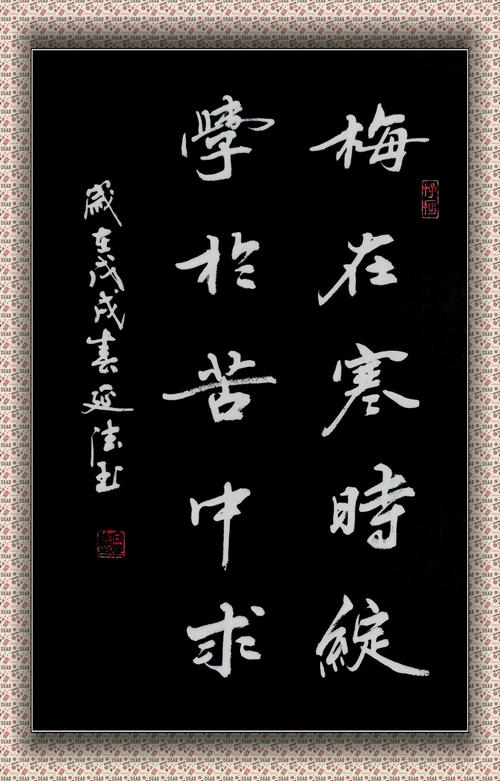 梅在寒時綻
學於苦中求
歲在戊戌春延法玉